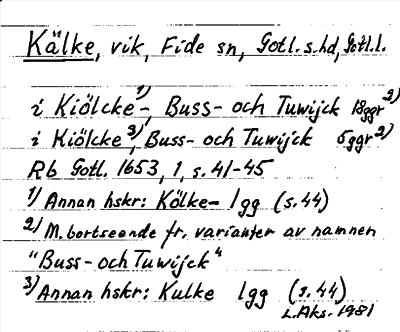 Kälke, vik, Fide sn, Gotl. s. hd, Gotl. l.
i Kiölcke¹⁾-, Buss- och Tuwijck 18ggr²⁾
i Kiölcke³⁾, Buss- och Tuwijck 5ggr²⁾
Rb Gotl. 1653, 1, s. 41-45
1) Annan hskr: Kölke- 1gg (s. 44)
2) M. bortseende fr. varianter av namnen
"Buss- och Tuwijck"
3) Annan hskr: Kulke 1gg (s. 44)
L. Aks. 1981